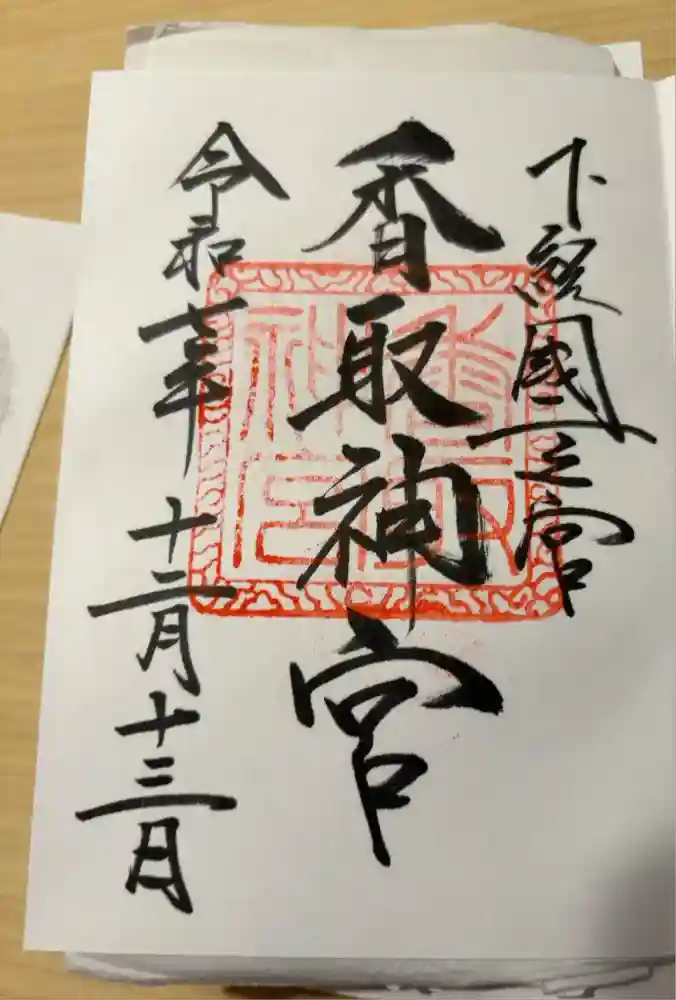 下総國一之宮
香取神宮
令和七年十二月十三日
香取
神宮